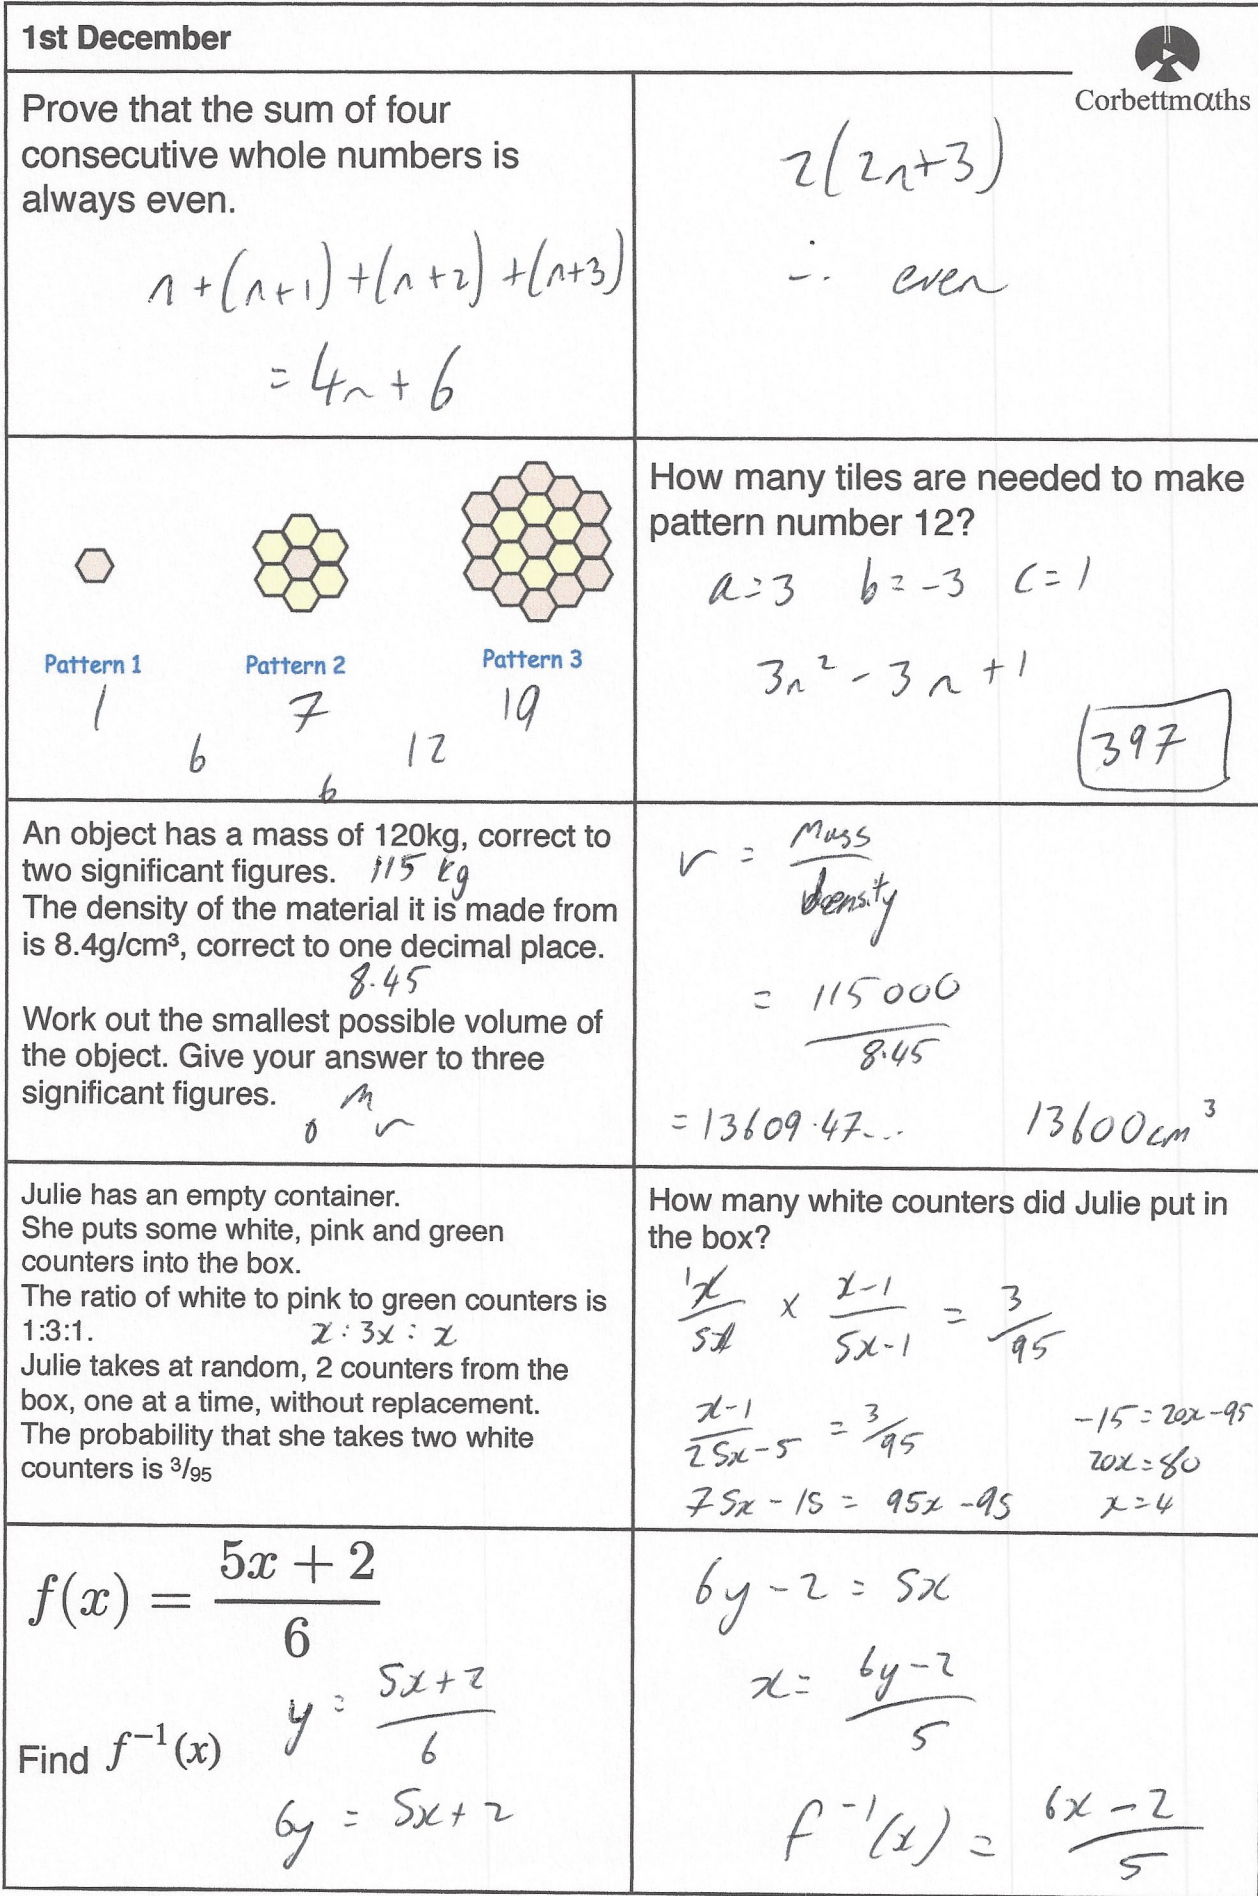 1st December
Corbettmαths
Prove that the sum of four
consecutive whole numbers is
always even.
n + (n+1) + (n+2) + (n+3)
= 4n + 6
2(2n+3)
∴ even
Pattern 1
Pattern 2
Pattern 3
1 7 19
6 12
6
How many tiles are needed to make
pattern number 12?
a=3 b=-3 c=1
3n² - 3n + 1
397
An object has a mass of 120kg, correct to
two significant figures. 115 kg
The density of the material it is made from
is 8.4g/cm³, correct to one decimal place.
8.45
Work out the smallest possible volume of
the object. Give your answer to three
significant figures.
M
D V
V = Mass / density
= 115000 / 8.45
= 13609.47... 13600cm³
Julie has an empty container.
She puts some white, pink and green
counters into the box.
The ratio of white to pink to green counters is
1:3:1. x : 3x : x
Julie takes at random, 2 counters from the
box, one at a time, without replacement.
The probability that she takes two white
counters is 3/95
How many white counters did Julie put in
the box?
1 x/5x × x-1/5x-1 = 3/95
x-1/25x-5 = 3/95
75x - 15 = 95x - 95
-15 = 20x - 95
20x = 80
x = 4
f(x) = 5x + 2 / 6
Find f⁻¹(x)
y = 5x+2 / 6
6y = 5x + 2
6y - 2 = 5x
x = 6y-2 / 5
f⁻¹(x) = 6x - 2 / 5